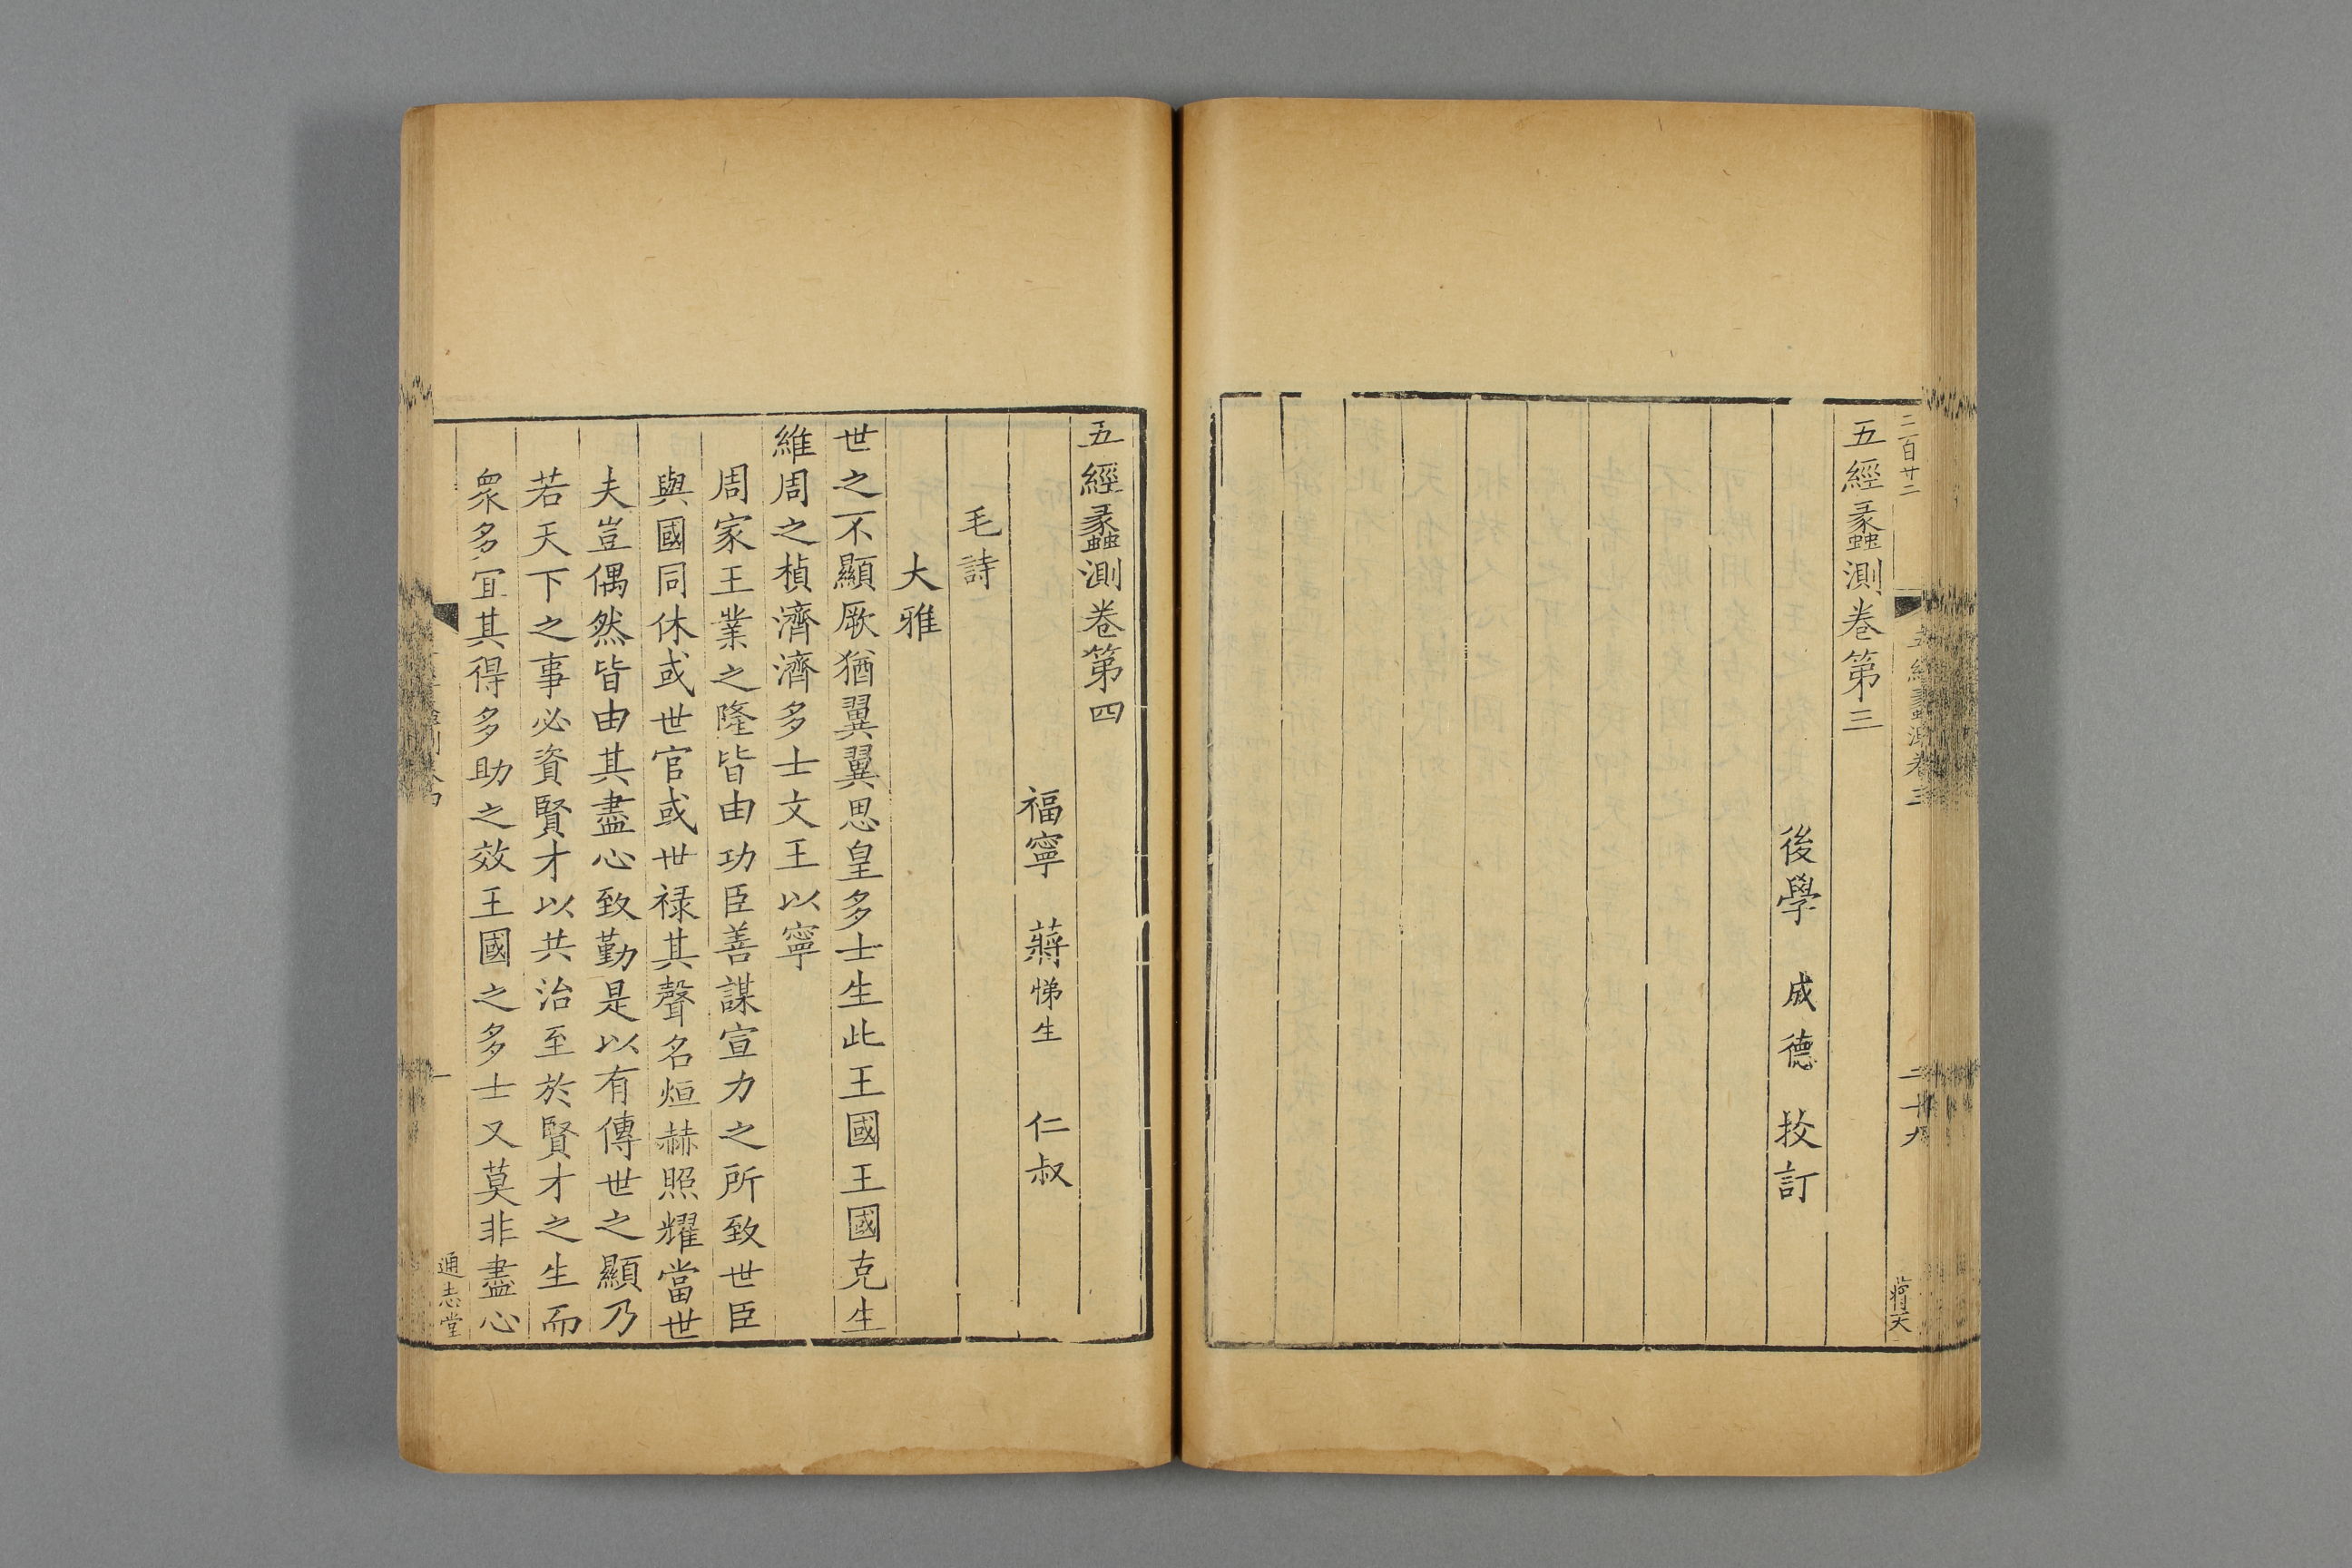 二百廿二
五經蠡測卷三
二十九
五經蠡測卷第三
後學 成德 挍訂
五經蠡測卷第四
福寧 蔣悌生 仁叔
毛詩
大雅
世之不顯厥猶翼翼思皇多士生此王國王國克生
維周之楨濟濟多士文王以寧
周家王業之隆皆由功臣善謀宣力之所致世臣
與國同休或世官或世禄其聲名烜赫照耀當世
夫豈偶然皆由其盡心致勤是以有傳世之顯乃
若天下之事必資賢才以共治至於賢才之生而
衆多冝其得多助之效王國之多士又莫非盡心
一
通志堂